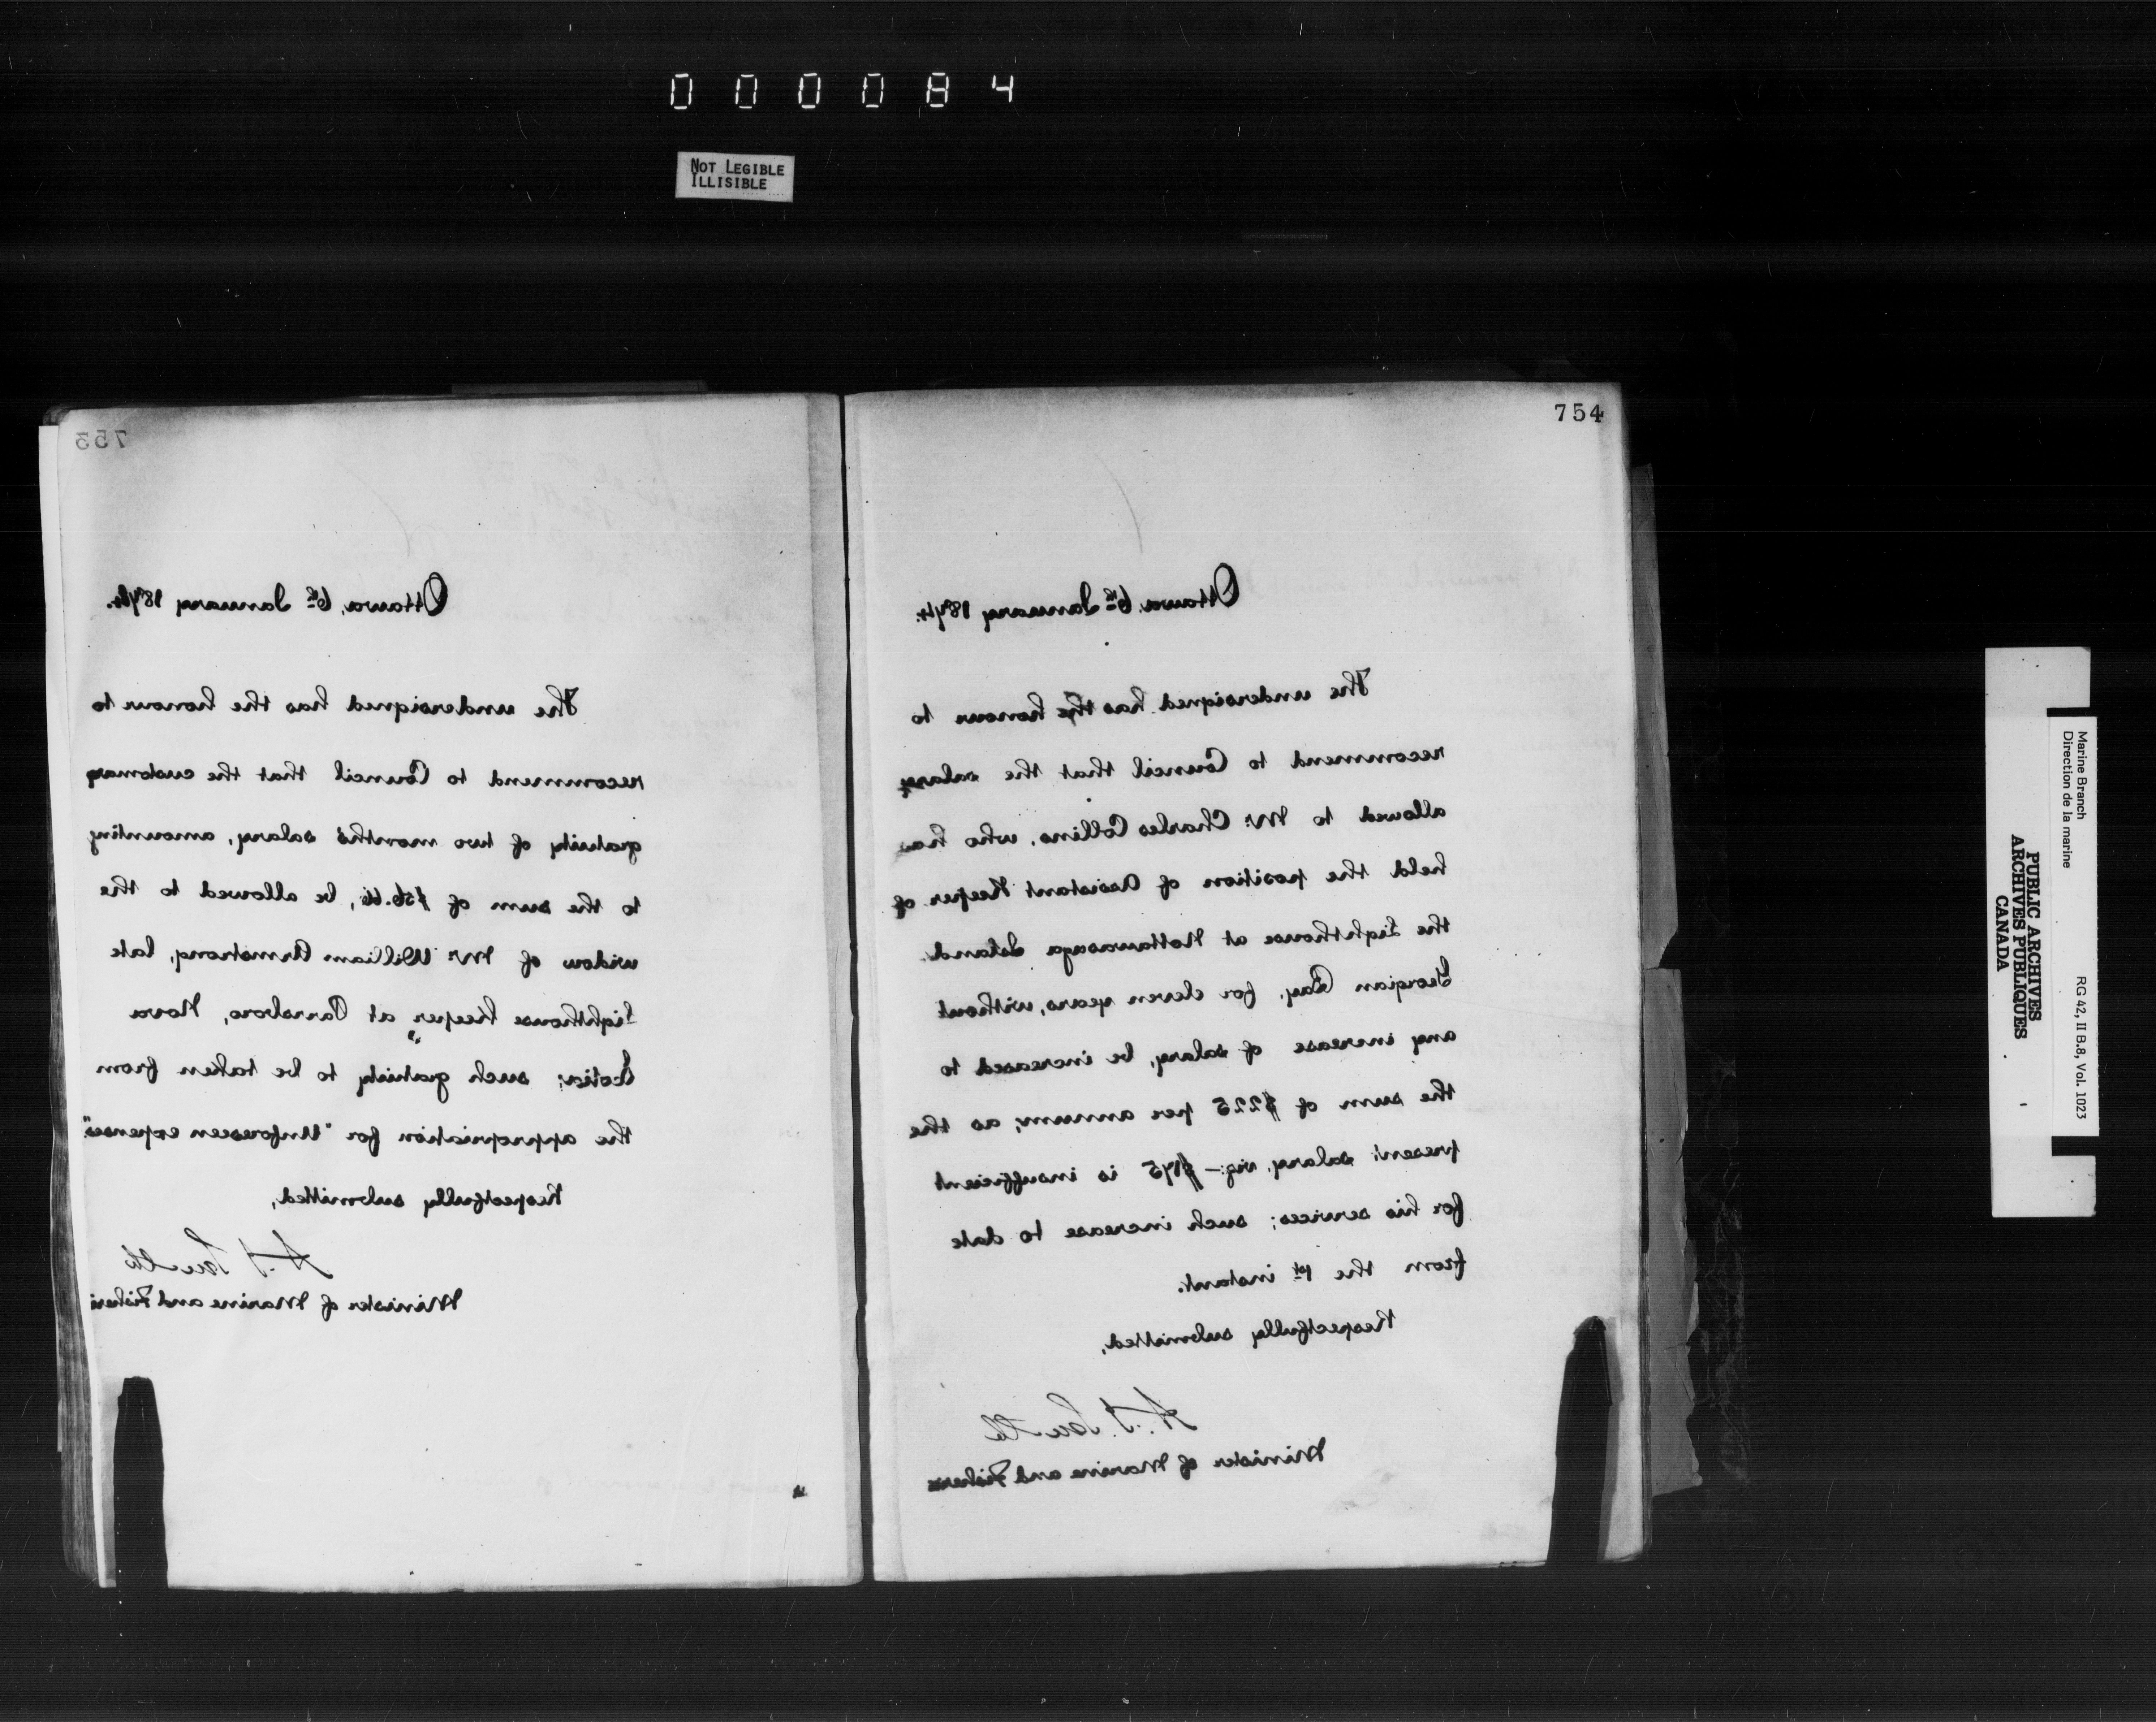 000084
NOT LEGIBLE
ILLISIBLE
753
Ottawa, 6th January 1874.
The undersigned has the honour to
recommend to Council that the customary
gratuity of two months' salary, amounting
to the sum of $56.66, be allowed to the
widow of Mr. William Armstrong, late
Lighthouse Keeper at Parrsboro, Nova
Scotia; such gratuity to be taken from
the appropriation for "Unforeseen expenses".
Respectfully submitted,
A. J. Smith
Minister of Marine and Fisheri
754
Ottawa, 6th January 1874.
The undersigned has the honour to
recommend to Council that the salary
allowed to Mr. Charles Collins, who has
held the position of Assistant Keeper of
the Lighthouse at Nottawasaga Island,
Georgian Bay, for eleven years, without
any increase of salary, be increased to
the sum of $225 per annum; as the
present salary, viz:— $175 is insufficient
for his services; such increase to date
from the 1st instant.
Respectfully submitted,
A. J. Smith
Minister of Marine and Fisheries
Marine Branch
Direction de la marine
RG 42, II B.8, Vol. 1023
PUBLIC ARCHIVES
ARCHIVES PUBLIQUES
CANADA